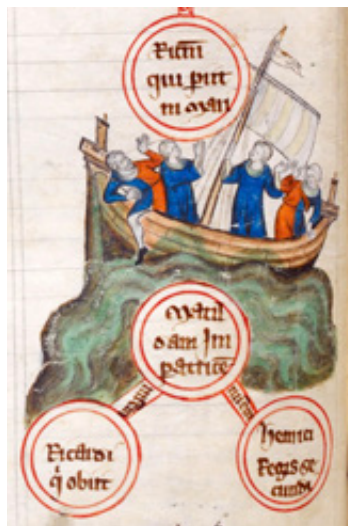 qui piit
in mari
Matil
dam Im
patricē
Ricardi
q̄ obiit
henrici
Regis se
cundi